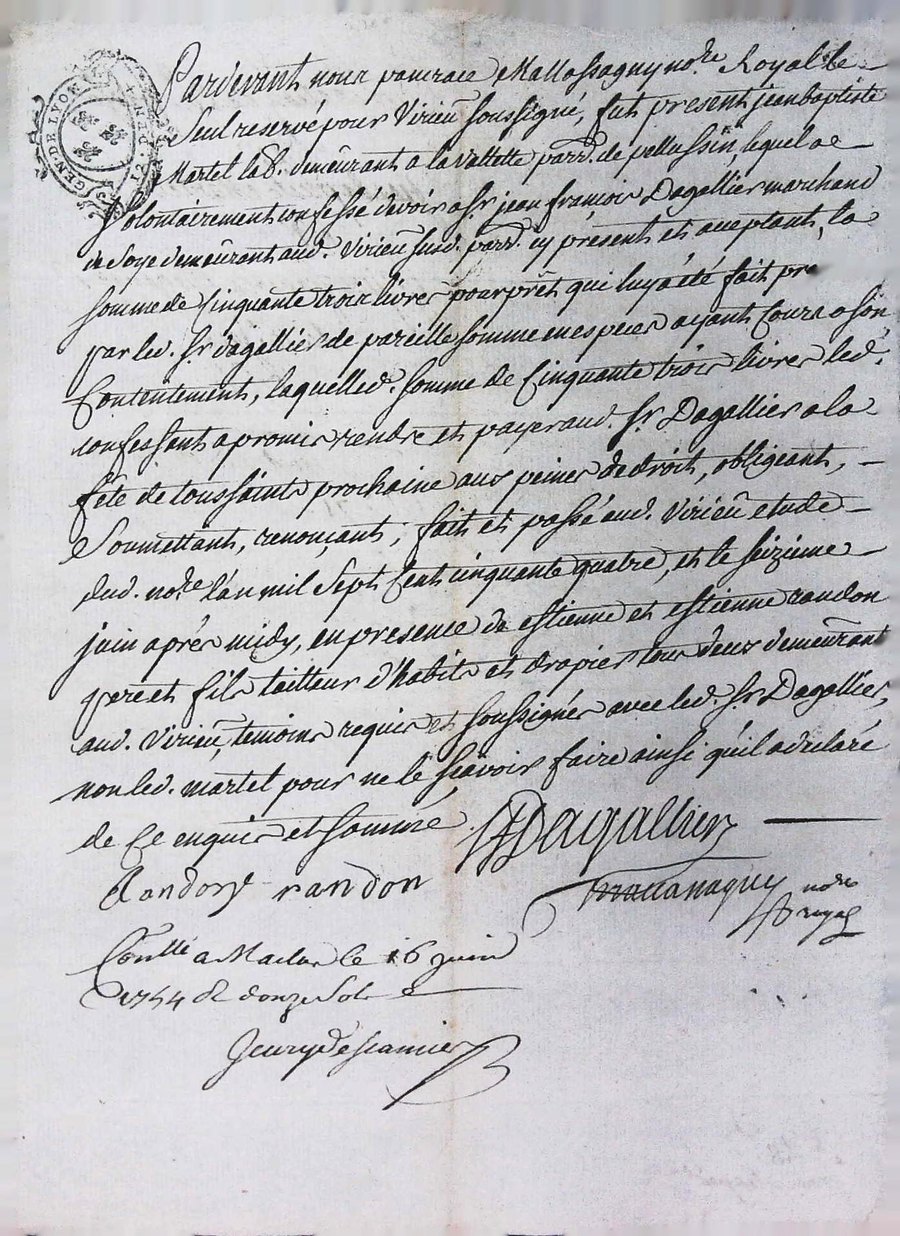 GEN. DE LYON
Pardevant nous pancrace Mallassagny no.re Royal le
Seul reservé pour Virieu soussigné, fut present jean baptiste
Martel lab. demeurant a la Vallette parr. de pellussin, lequel a
Volontairement confessé devoir a Sr. jean françois Dagallier marchand
de Soye demeurant aud. Virieu susd. parr. cy présent et acceptant, la
somme de Cinquante trois livres pour prêt qui luy a été fait
par led. Sr. dagallier de pareille somme en especes ayant Cours a son
Contentement, laquelle d. somme de Cinquante trois livres led.
confessant a promis rendre et payer aud. Sr. Dagallier a la
fête de toussaints prochaine aux peines de droit, obligeant,
Soumettant, renonçant; fait et passé aud. Virieu etude
dud. no.re l'an mil Sept Cent cinquante quatre, et le seizieme
juin aprés midy, en presence de estienne et estienne randon
pere et fils tailleur d'habits et drapier tous deux demeurant
aud. Virieu, temoins requis et soussignés avec led. Sr. Dagallier,
non led. martel pour ne le sçavoir faire ainsi qu'il a declaré
de Ce enquis et sommé.
Dagallier
Randon randon
Mallassagny no.re
royal
Con.llé a Maclas le 16 juin
1754 R douze Sols